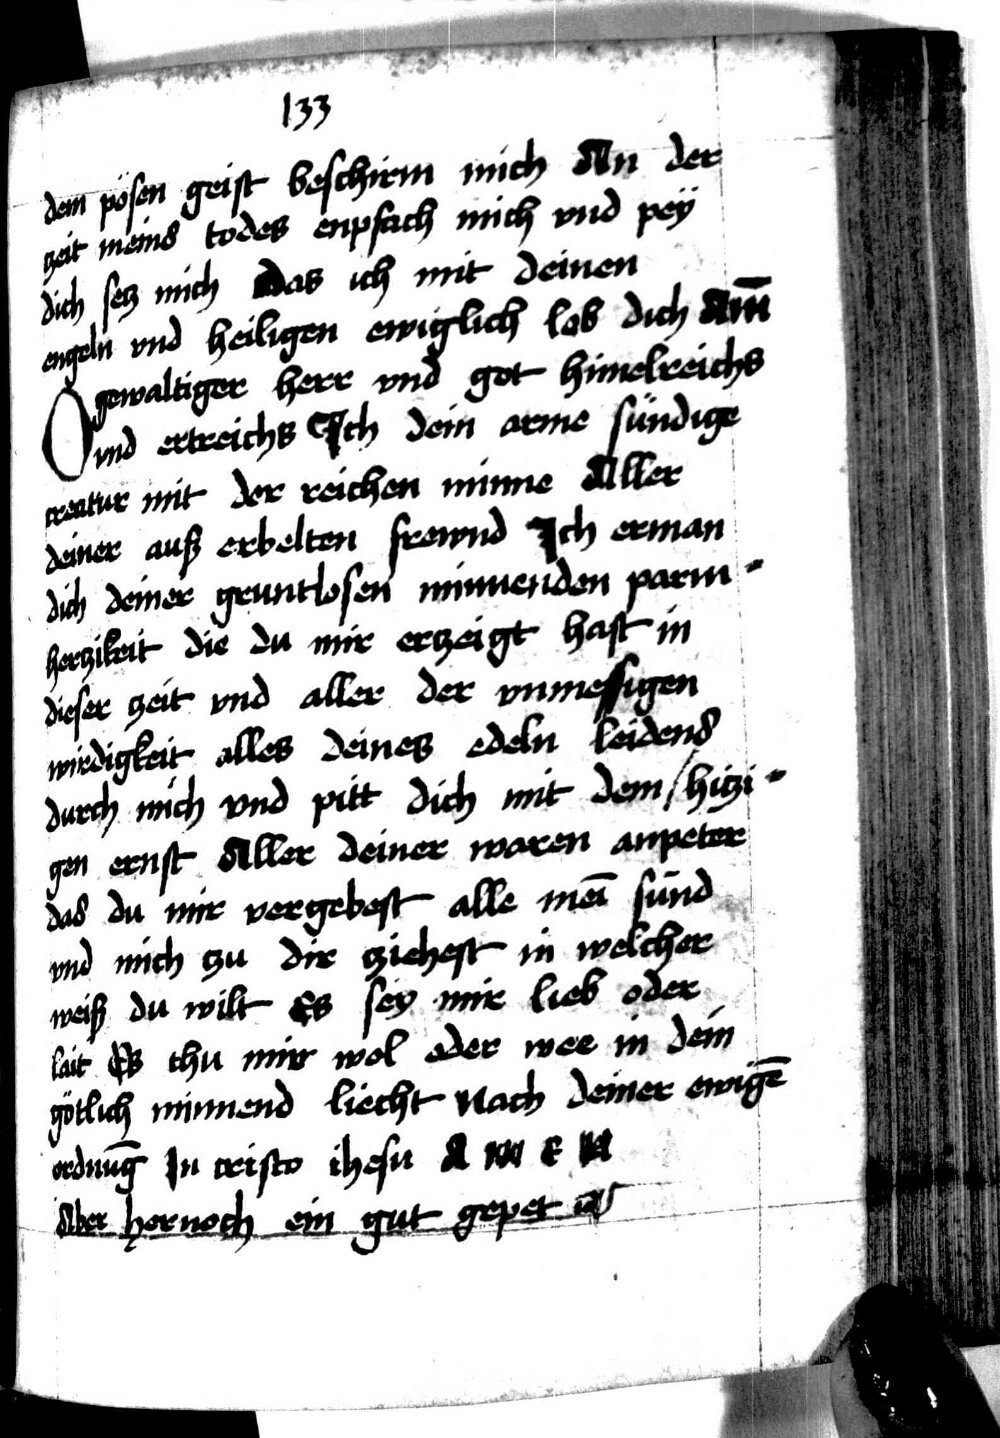 133
dem pösen geist beschirm mich An der
zeit meins todes enpfach mich vnd peÿ
dich secz mich das ich mit deinen
engeln vnd heiligen ewiglich lob dich Am̄
O gewaltiger herr vnd got himelreichs
vnd ertreichs Ich dein arme sündige
creatur mit der reichen minne Aller
deiner auß erbelten frewnd Ich erman
dich deiner gruntlosen minnenden parm-
herczikeit die du mir erczeigt hast in
dieser zeit vnd aller der vnmessigen
wirdigkeit alles deines edeln leidens
durch mich vnd pitt dich mit dem hiczi-
gen ernst Aller deiner waren anpeter
das du mir vergebest alle mei̅ sünd
vnd mich zu dir ziehest in welcher
weiß du wilt Es sey mir lieb oder
lait Es thu mir wol oder wee in dein
götlich minnend liecht Nach deiner ewige̅
ordnu̅g In cristo ihesu A M E N
Aber hernoch ein gut gepet